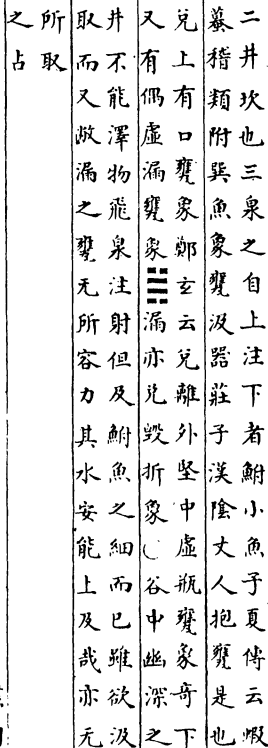 二井坎也三泉之自上注下者鮒小魚子夏傳云蝦
蟇稽類附巽魚象甕汲器莊子漢陰丈人抱甕是也
兌上有口甕象鄭玄云兌離外堅中虛瓶甕象竒下
又有偶虛漏甕象漏亦兌毀折象谷中幽深之
井不能澤物飛泉注射但及鮒魚之細而已雖欲汲
取而又敝漏之甕无所容力其水安能上及哉亦无
所取
之占